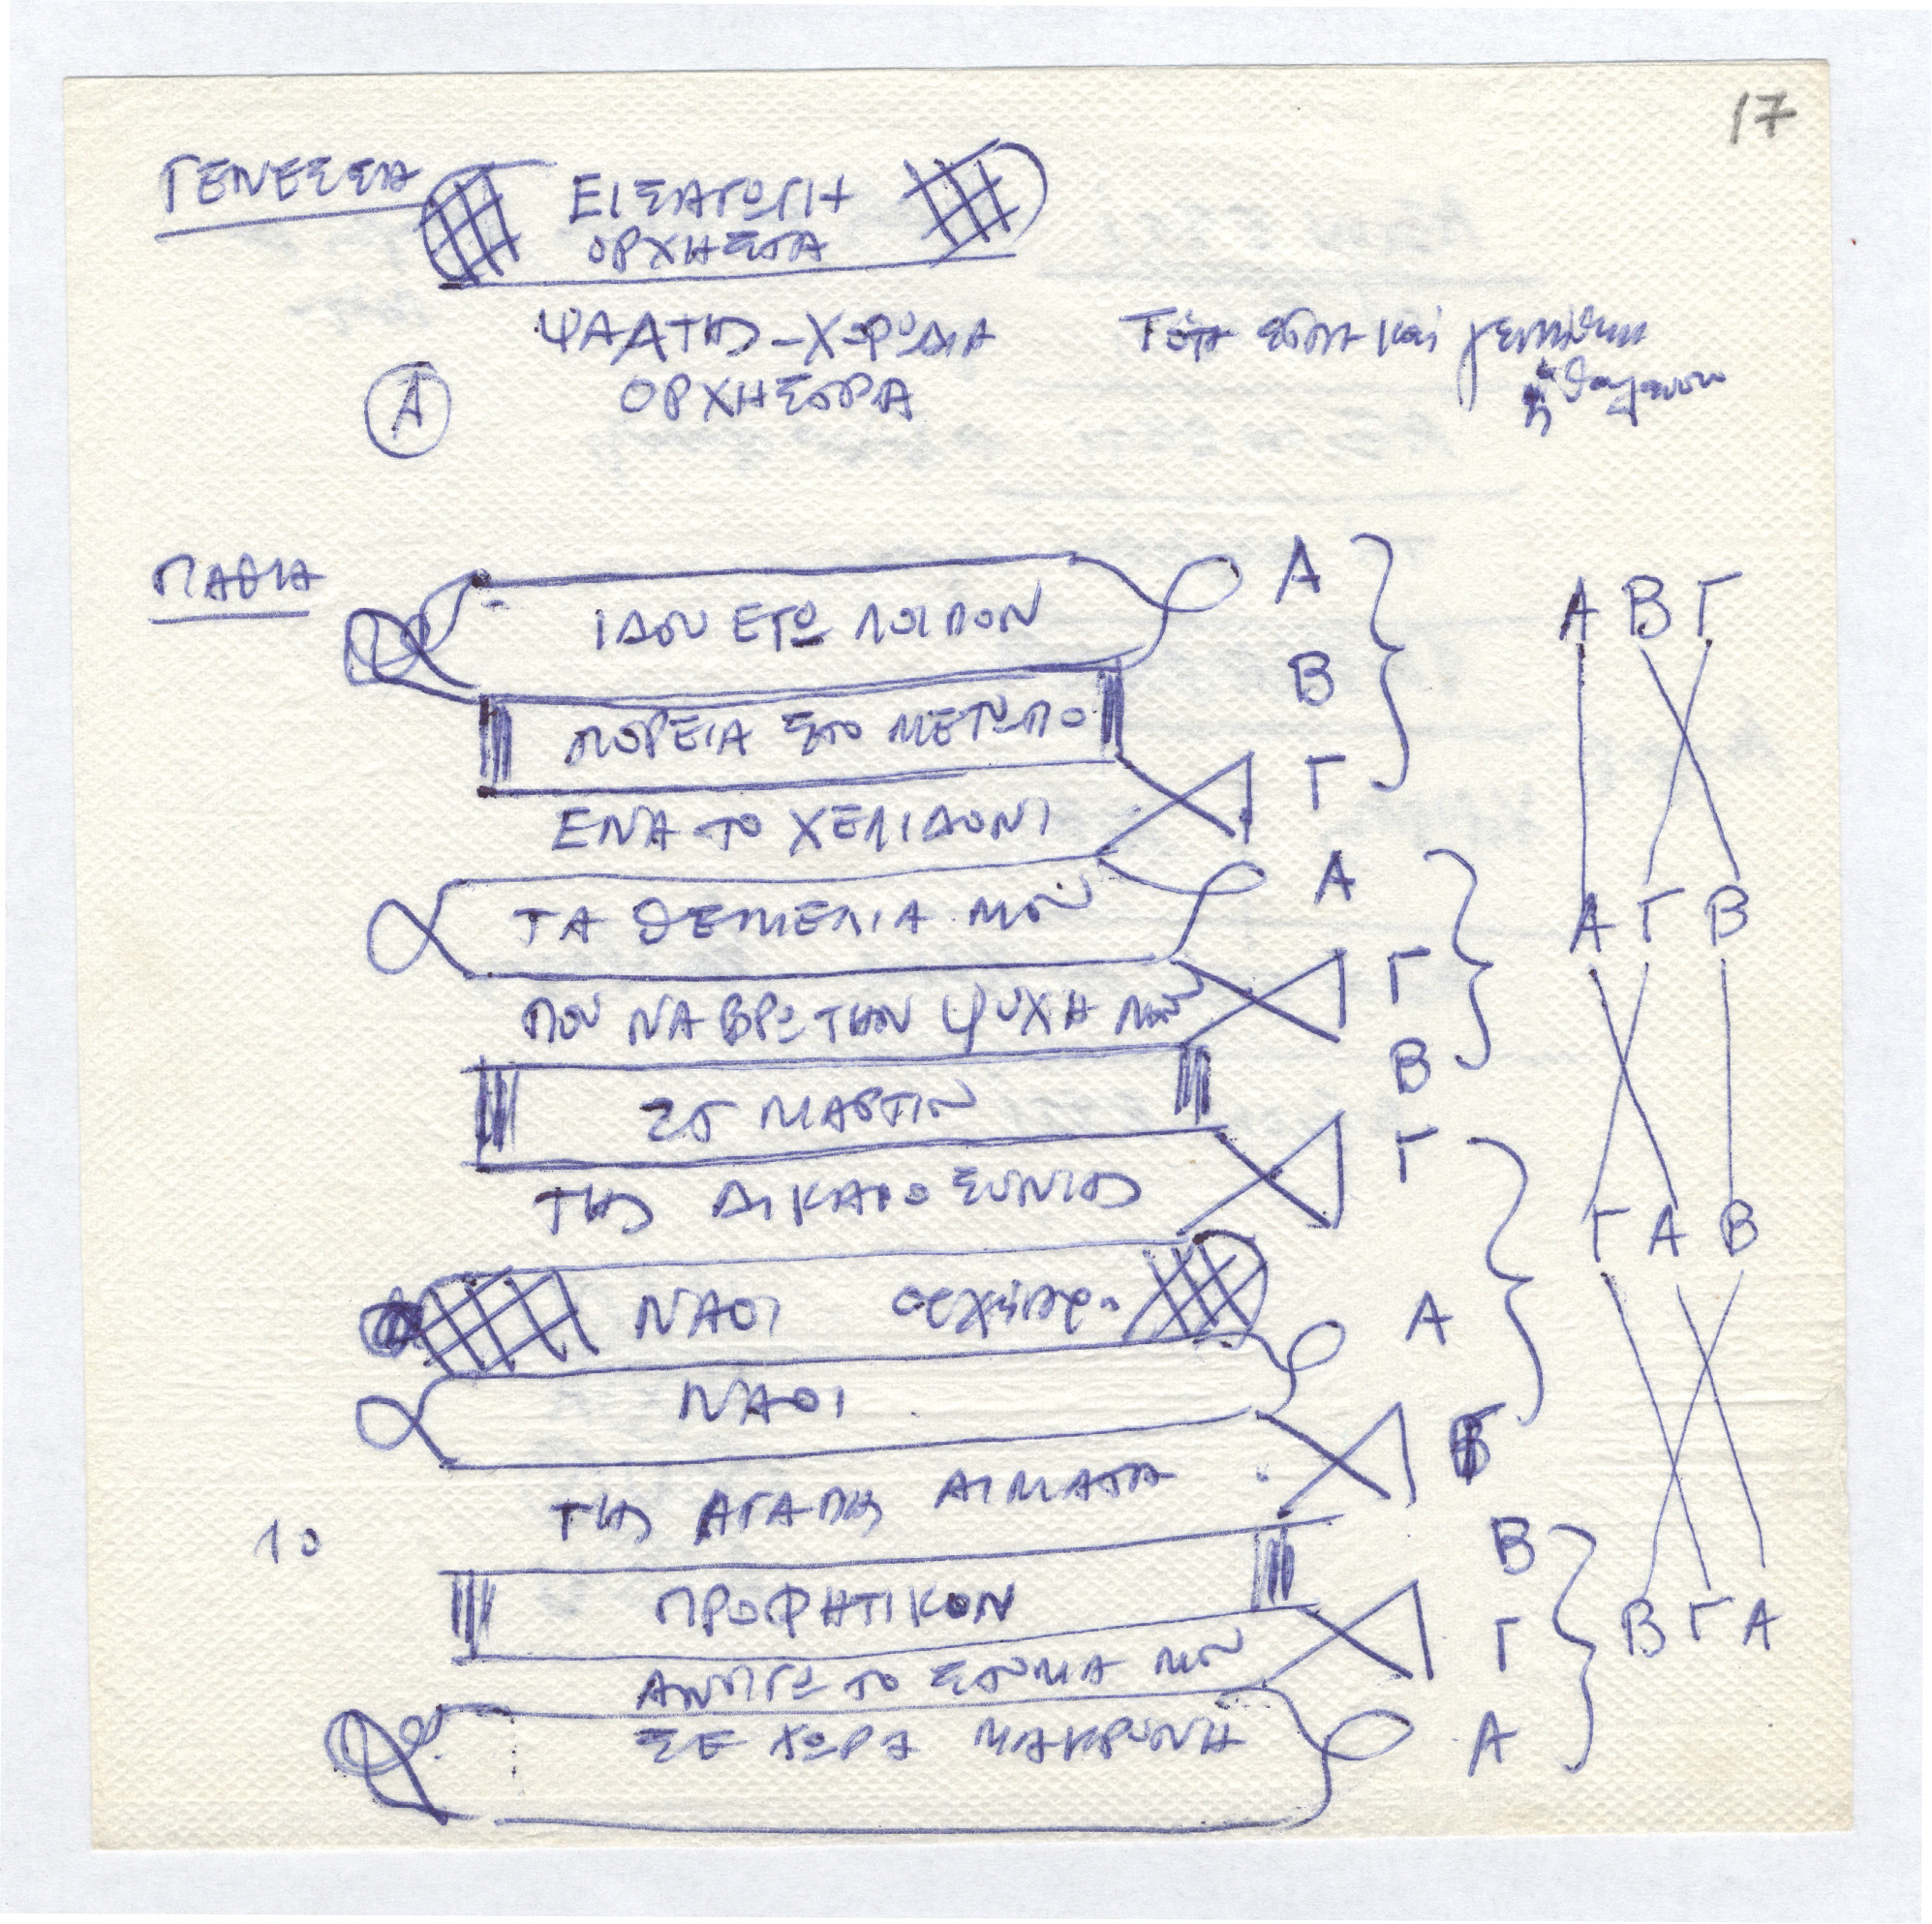 17
ΓΕΝΕΣΣΙΑ
ΕΙΣΑΓΩΓΗ
ΟΡΧΗΣΤΑ
ΨΑΛΤΗΣ – ΧΟΡΩΔΙΑ
ΟΡΧΗΣΤΡΑ
Α
Τότε και
ή
ΠΑΘΙΑ
ΙΔΟΥ ΕΓΩ ΛΟΙΠΟΝ Α
ΠΟΡΕΙΑ ΣΤΟ ΜΕΤΩΠΟ Β
ΕΝΑ ΤΟ ΧΕΛΙΔΟΝΙ Γ
Α Β Γ
ΤΑ ΘΕΜΕΛΙΑ ΜΟΥ Α
ΠΟΥ ΝΑ ΒΡΩ ΤΗΝ ΨΥΧΗ ΜΟΥ Γ
ΜΑΡΤΙΝ Β
Α Γ Β
ΤΗΣ ΔΙΚΑΙΟΣΥΝΗΣ Γ
ΝΑΟΙ ορχήστρα Α
ΝΑΟΙ
Γ Α Β
ΤΗΣ ΑΓΑΠΗΣ ΑΙΜΑΤΑ
10
ΠΡΟΦΗΤΙΚΟΝ Β
ΑΝΟΙΓΩ ΤΟ ΣΤΟΜΑ ΜΟΥ Γ
ΣΕ ΧΩΡΑ ΜΑΚΡΥΝΗ Α
Β Γ Α